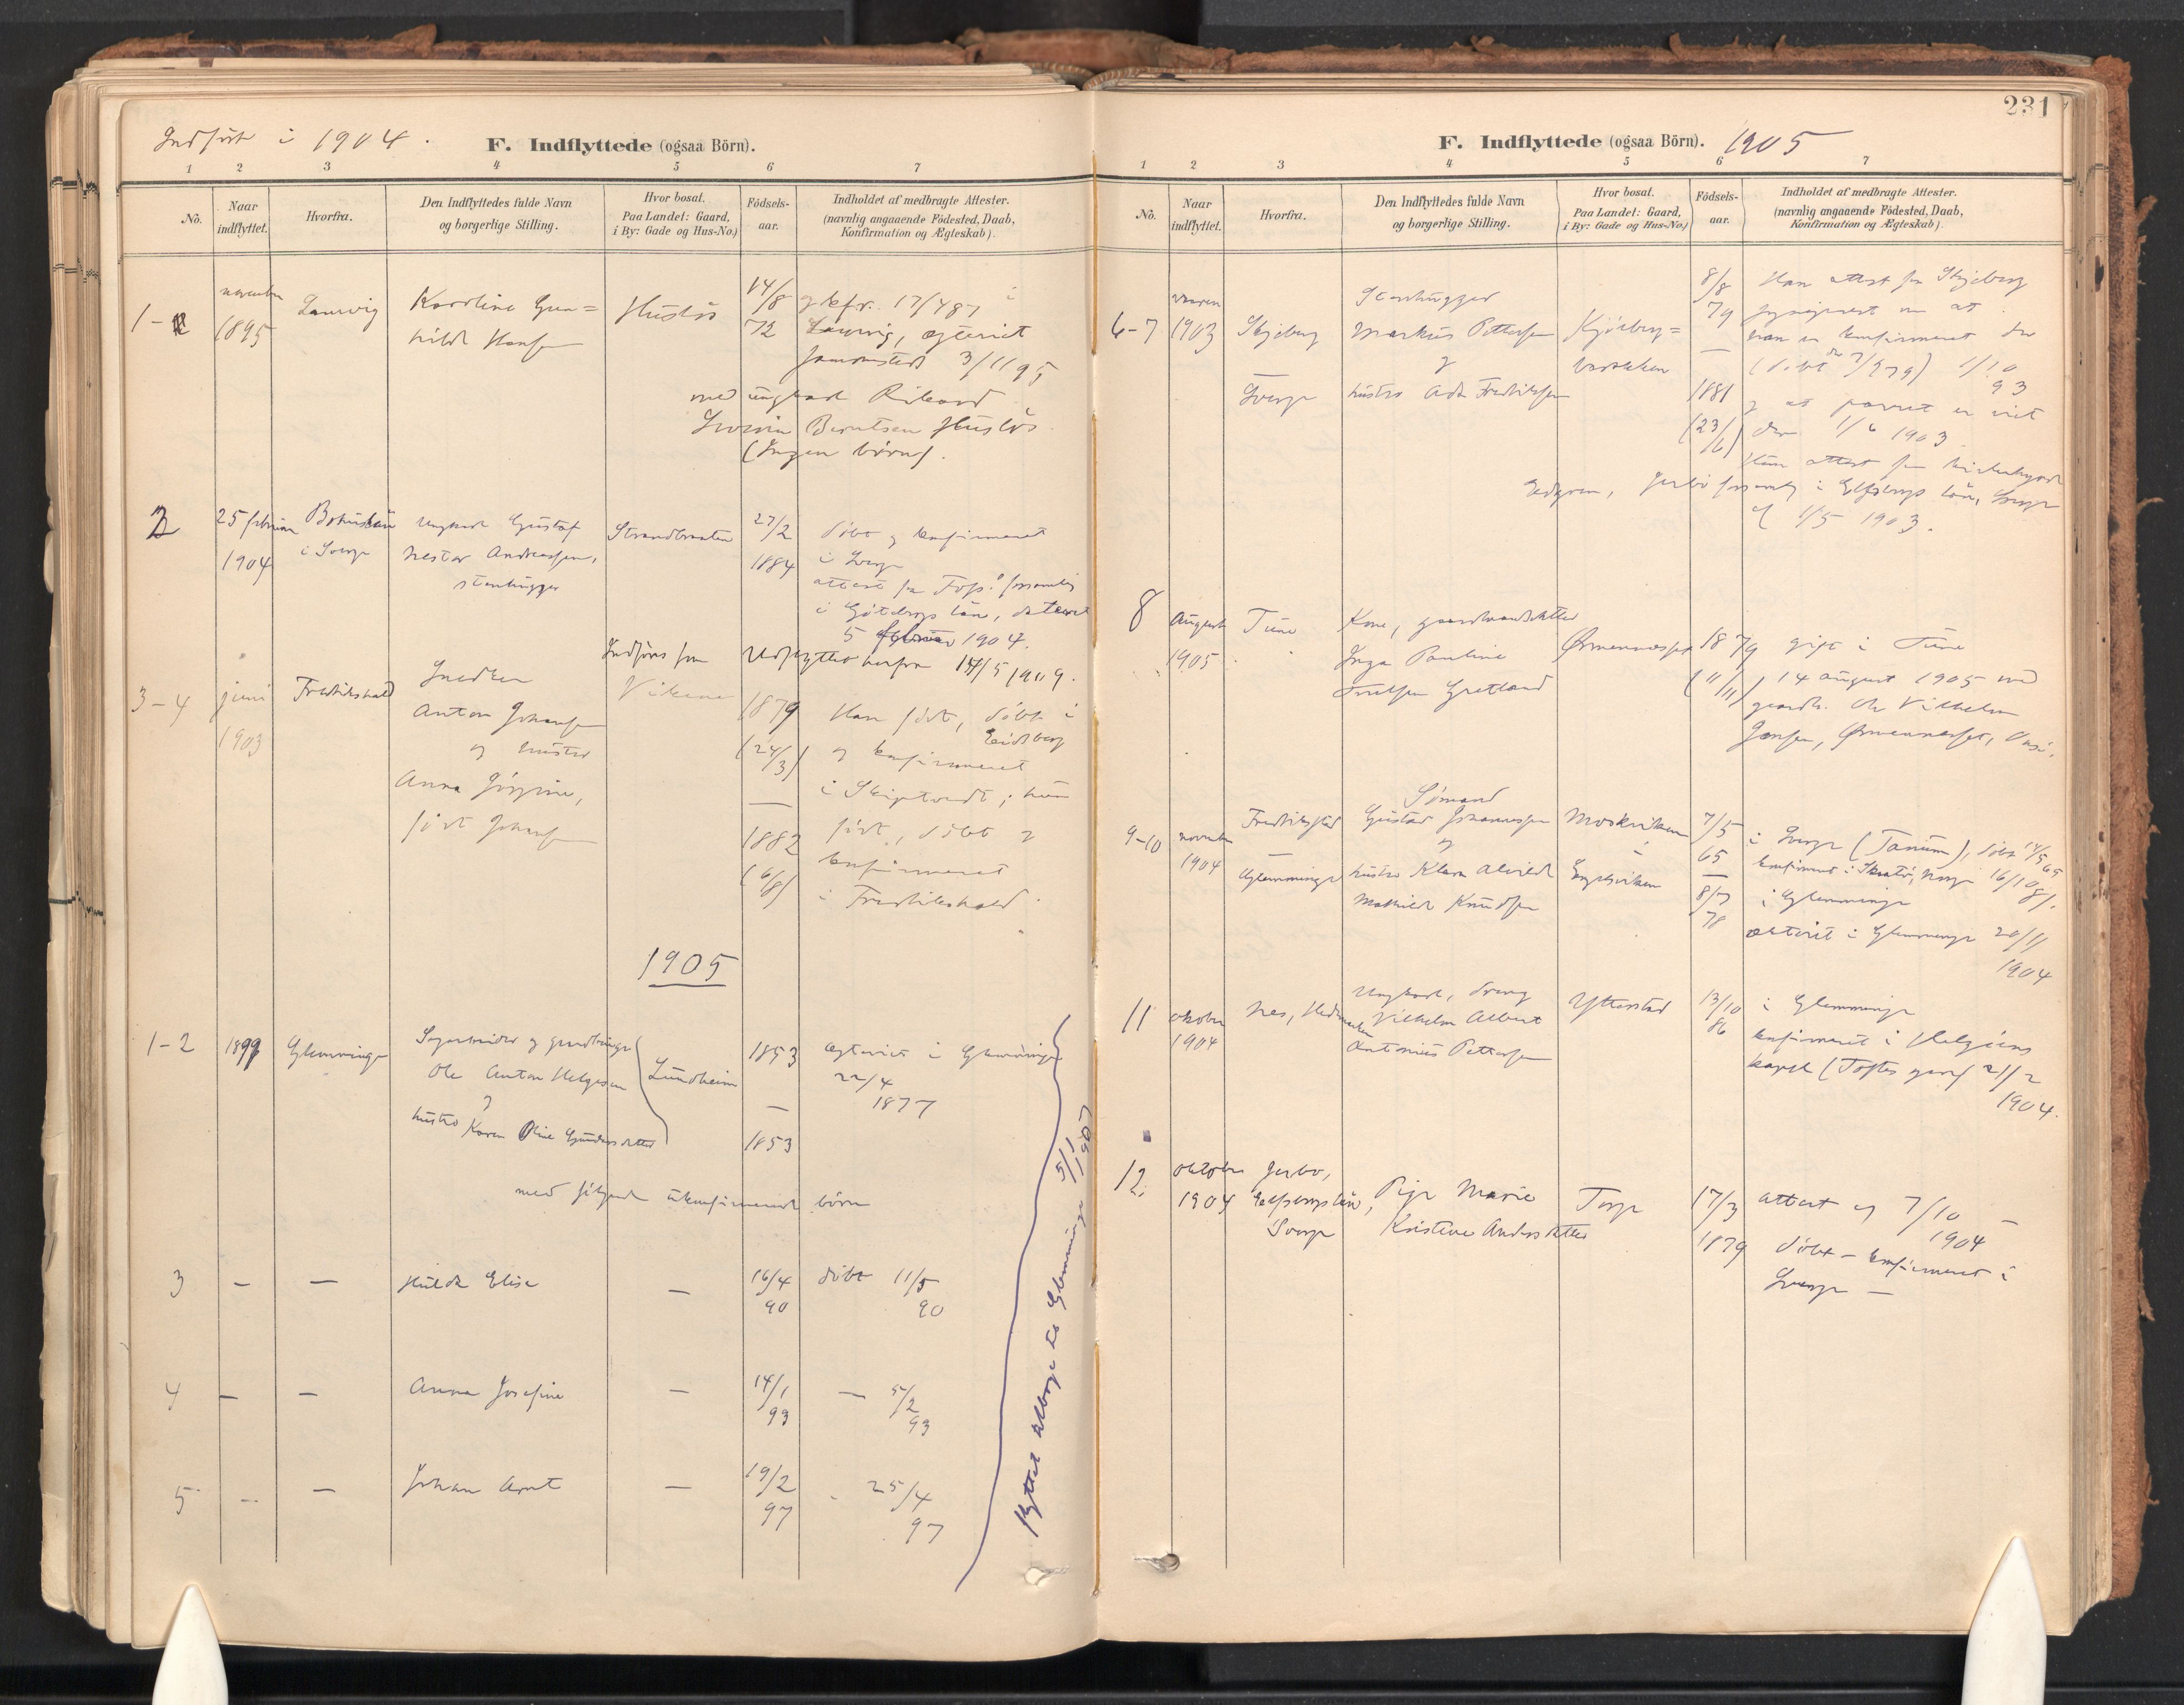 Indført i 1904.
F. Indflyttede (ogsaa Börn).
1 2 3 4 5 6 7
No.
Naar indflyttet.
Hvorfra.
Den Indflyttedes fulde Navn og borgerlige Stilling.
Hvor bosat. Paa Landet: Gaard, i By: Gade og Hus-No.)
Födsels-aar.
Indholdet af medbragte Attester. (navnlig angaaende Födested, Daab, Konfirmation og Ægteskab).
november
1895
Laurvig
Karoline Gun=
hilde Hansen
Huslös
14/8
72
og kfr. 17/4 87 i
Laurvig, egteviet
sammesteds 3/11 95
med ungkarl Rikard
Berntsen Huslös
(Ingen børn).
2
25 februar
1904
Bohuslän
i Sverge
Ungkarl Gustaf
Nestor Andreassen,
stenhugger
Strandbraaten
27/2
1884
døbt og konfirmeret
i Sverge
attest fra Foss forsamling
i Göteborgs län, dateret
5 februar 1904.
Udflyttet herfra 14/5 1909.
3-4
juni
1903
Fredrikshald
Snedker
Anton Johansen
og hustru
Anna Jörgine,
født Johansen
Vikene
1879
(24/3)
—
1882
(6/8)
Han født, døbt i
Eidsberg
og konfirmeret
i Skiptvedt; hun
født, døbt og
konfirmeret
i Fredrikshald.
1905
1-2
1899
Glemminge
Ole Anton Helgesen
og
hustru Karen Oline Gundersdatter
Lundheim
1853
—
1853
Egteviet i Glemminge
22/4
1877
med følgende ukonfirmerede börn
3 — — Hulda Elise — 16/4
90
døbt 11/5
90
4 — — Anna Josefine — 14/1
93
— 5/2
93
5 — — Johan Arnt — 19/2
97
25/4
97
flyttet tilbage til Glemminge 5/1 1907
231
F. Indflyttede (ogsaa Börn). 1905
1 2 3 4 5 6 7
No.
Naar indflyttet.
Hvorfra.
Den Indflyttedes fulde Navn og borgerlige Stilling.
Hvor bosat. Paa Landet: Gaard, i By: Gade og Hus-No.)
Födsels-aar.
Indholdet af medbragte Attester. (navnlig angaaende Födested, Daab, Konfirmation og Ægteskab).
6-7
vaaren
1903
Skjeberg
—
Sverge
Stenhugger
Markus Pettersen
og
hustru Ada Fredriksen
Kjölberg=
bakken
8/8
79
—
1881
(23/6)
Han attest fra Skjeberg
om at
han er konfirmeret der
1/10
93
og at parret er viet
der 1/6 1903.
Hun attest fra
Elfsborgs län, Sverge
af 1/5 1903.
8
August
1905
Tune
Kone, gaardmandsdatter
Inga Pauline
Gretland
Ørmennesset
1879
(11/11)
gift i Tune
14 august 1905 med
gaardb. Ole Vilhelm
Jensen, Ørmennesset, Onsö.
9-10
november
1904
Fredrikstad
—
Glemminge
Sømand
Gustav Johannessen
og
hustru Klara Alvilde
Mathilde Knudsen
Moskviken
i
Engelsviken
7/5
65
—
8/7
78
i Sverge (Tanum), døbt 14/5 65
konfirmert i Skaatö, Norge 16/10 81.
i Glemminge
ekteviet i Glemminge 20/11
1904
11
oktober
1904
Nes, Hedmarken
Ungkarl, dreng
Vilhelm Albert
Antonius Pettersen
Ytterstad
13/10
86
i Glemminge
konfirmeret i Helgöens
kapel (Toftes gave) 21/2
1904.
12.
oktober
1904
Jerbo,
Elfsborgs län,
Sverge
Pige Marie
Kristine Andersdatter
Torp
17/3
1879
attest af 7/10
1904 —
døbt — konfirmeret i
Sverge —